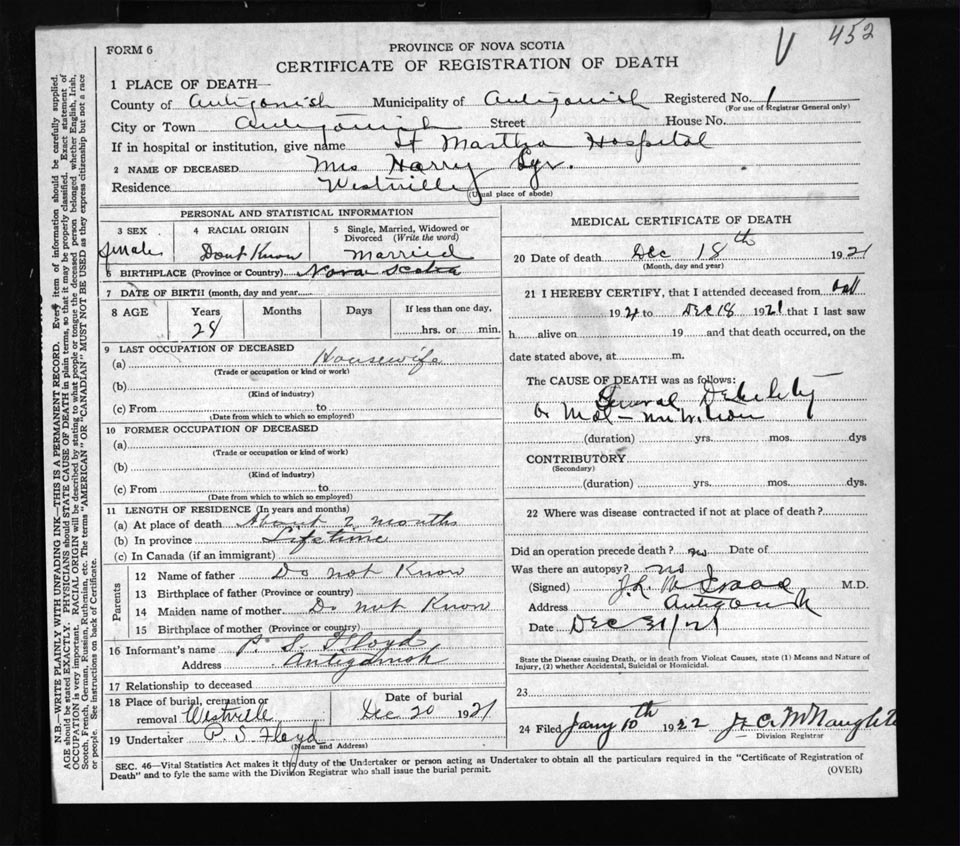 V 452
FORM 6
PROVINCE OF NOVA SCOTIA
CERTIFICATE OF REGISTRATION OF DEATH
1 PLACE OF DEATH—
County of Antigonish Municipality of Antigonish Registered No. 1
(For use of Registrar General only)
City or Town Antigonish Street House No.
If in hospital or institution, give name St Martha Hospital
2 NAME OF DECEASED Mrs Harry
Residence Westville
(Usual place of abode)
PERSONAL AND STATISTICAL INFORMATION
3 SEX 4 RACIAL ORIGIN 5 Single, Married, Widowed or Divorced (Write the word)
female Dont Know Married
6 BIRTHPLACE (Province or Country) Nova Scotia
7 DATE OF BIRTH (month, day and year
8 AGE Years Months Days If less than one day,
28 hrs. or min.
9 LAST OCCUPATION OF DECEASED
(a) Housewife
(Trade or occupation or kind or work)
(b)
(Kind of industry)
(c) From to
(Date from which to which so employed)
10 FORMER OCCUPATION OF DECEASED
(a)
(Trade or occupation or kind of work)
(b)
(Kind of industry)
(c) From to
(Date from which to which so employed)
11 LENGTH OF RESIDENCE (In years and months)
(a) At place of death About 2 months
(b) In province Lifetime
(c) In Canada (if an immigrant)
Parents
12 Name of father Do not Know
13 Birthplace of father (Province or country)
14 Maiden name of mother Do not Know
15 Birthplace of mother (Province or country)
16 Informant's name P. S. Floyd
Address Antigonish
17 Relationship to deceased
18 Place of burial, cremation or removal Westville Date of burial Dec 20 1921
19 Undertaker P. S. Floyd
(Name and Address)
MEDICAL CERTIFICATE OF DEATH
20 Date of death Dec 18th 1921
(Month, day and year)
21 I HEREBY CERTIFY, that I attended deceased from
1921 to Dec 18 1921 that I last saw
h alive on 19 and that death occurred, on the
date stated above, at m.
The CAUSE OF DEATH was as follows:
General Debility
or Mal-nutrition
(duration) yrs. mos. dys
CONTRIBUTORY
(Secondary)
(duration) yrs. mos. dys.
22 Where was disease contracted if not at place of death?
Did an operation precede death? no Date of
Was there an autopsy? no
(Signed) M.D.
Address Antigonish
Date Dec 31/21
State the Disease causing Death, or in death from Violent Causes, state (1) Means and Nature of
Injury, (2) whether Accidental, Suicidal or Homicidal.
23
24 Filed Jany 10th 1922
Division Registrar
SEC. 46—Vital Statistics Act makes it the duty of the Undertaker or person acting as Undertaker to obtain all the particulars required in the "Certificate of Registration of
Death" and to fyle the same with the Division Registrar who shall issue the burial permit.
(OVER)
N.B.—WRITE PLAINLY WITH UNFADING INK—THIS IS A PERMANENT RECORD. Every item of information should be carefully supplied.
AGE should be stated EXACTLY. PHYSICIANS should STATE CAUSE OF DEATH in plain terms, so that it may be properly classified. Exact statement of
OCCUPATION is very important. RACIAL ORIGIN will be described by stating to what people or tongue the deceased person belonged whether English, Irish,
Scotch, French, German, Russian, Ruthenian, etc. The terms "AMERICAN" OR "CANADIAN" MUST NOT BE USED as they express citizenship but not a race
or people. See instructions on back of Certificate.